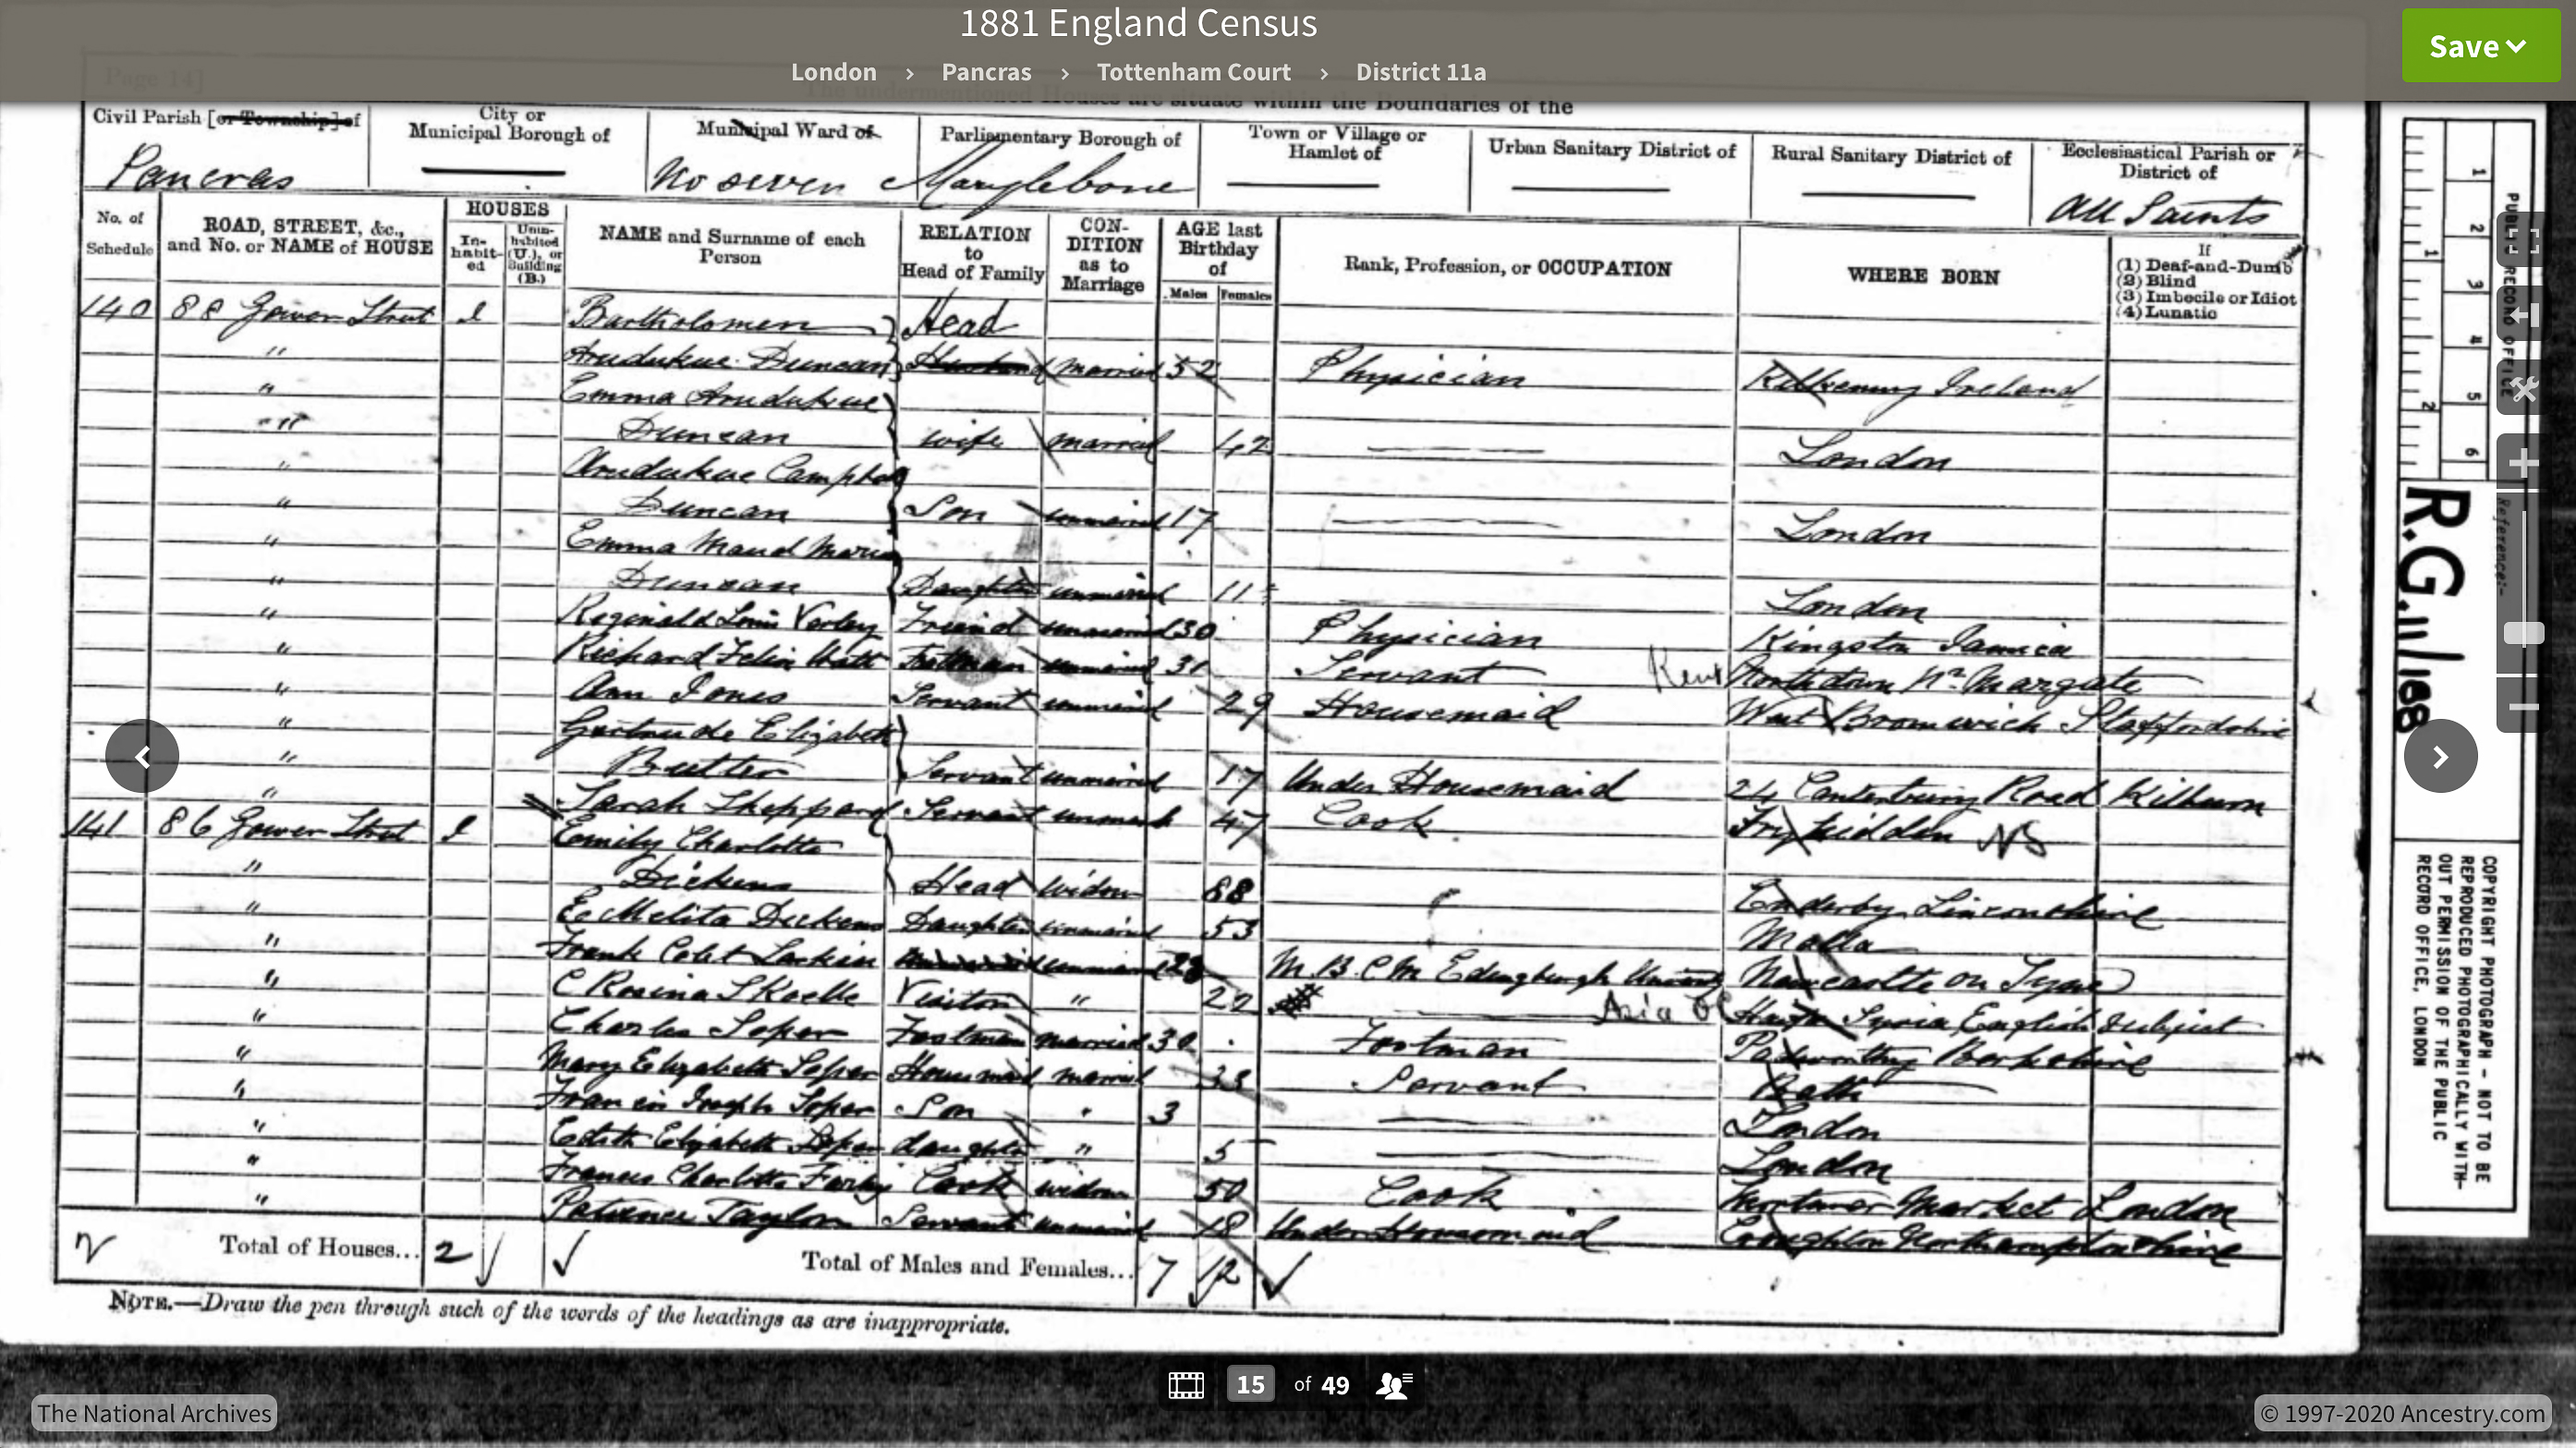 1881 England Census
London › Pancras › Tottenham Court › District 11a
Save
Page 14]
The undermentioned Houses are situate within the Boundaries of the
Civil Parish [or Township] of
City or Municipal Borough of
Municipal Ward of
Parliamentary Borough of
Town or Village or Hamlet of
Urban Sanitary District of
Rural Sanitary District of
Ecclesiastical Parish or District of
Pancras No seven Marylebone All Saints
No. of Schedule
ROAD, STREET, &c., and No. or NAME of HOUSE
HOUSES
In-habit-ed
Unin-habited (U.), or Building (B.)
NAME and Surname of each Person
RELATION to Head of Family
CON-DITION as to Marriage
AGE last Birthday of
Males Females
Rank, Profession, or OCCUPATION
WHERE BORN
If
(1) Deaf-and-Dumb
(2) Blind
(3) Imbecile or Idiot
(4) Lunatic
140 88 Gower Street 1 Bartholomew Head
" Duncan married 52 Physician Kilkenny Ireland
" Emma
" Duncan wife married 42 London
" Campbell
" Duncan Son unmarried 17 London
" Emma Maud Maria
" Duncan Daughter unmarried 11 London
" Reginald Louis Verley Friend unmarried 30 Physician Kingston Jamaica
" Richard Felix Footman unmarried 31 Servant Kent Northdown Nr Margate
" Ann Jones Servant unmarried 29 Housemaid West Bromwich Staffordshire
" Gertrude Elizabeth
" Butter Servant unmarried 17 Under Housemaid 24 Canterbury Road Kilburn
" Sarah Sheppard Servant unmard 47 Cook NS
141 86 Gower Street 1 Emily Charlotte
" Dickens Head widow 88 Enderby Linconshire
" E Melita Dickens Daughter unmarried 53 Malta
" Frank Colet Larkin unmarried 28 M.B. C.M. Edingburgh Newcastle on Tyne
" C Rosina S Koelle Visitor " 22 Asia Syria English Subject
" Charles Soper Footman married 30 Footman Padworthy Berkshire
" Mary Elizabeth Soper Housemaid married 33 Servant Bath
" Francis Joseph Soper Son 3 London
" Edith Elizabeth Soper daughter " 5 London
" Frances Charlotte Cook widow 50 Cook Mortimer Market London
" Patience Taylor Servant unmarried 18 Under Housemaid Northamptonshire
2 Total of Houses... 2
Total of Males and Females... 7 12
NOTE.—Draw the pen through such of the words of the headings as are inappropriate.
PUBLIC RECORD OFFICE
1 2 3 4 5 6
1 2
Reference:-
R.G. 11/188
COPYRIGHT PHOTOGRAPH - NOT TO BE
REPRODUCED PHOTOGRAPHICALLY WITH-
OUT PERMISSION OF THE PUBLIC
RECORD OFFICE, LONDON
15 of 49
The National Archives
© 1997-2020 Ancestry.com